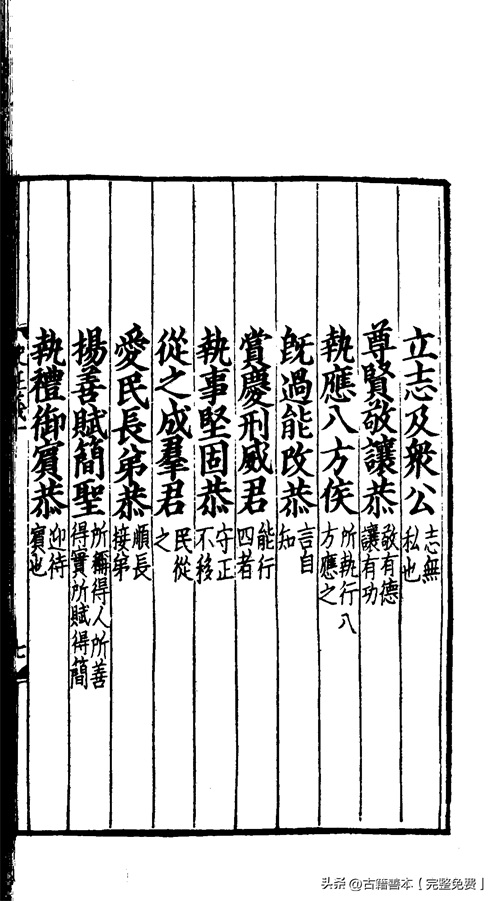 立志及衆公志無私也
尊賢敬讓恭敬有德讓有功
執應八方侯所執行八方應之
旣過能改恭言自知
賞慶刑威君能行四者
執事堅固恭守正不移
從之成羣君民從之
愛民長弟恭順長接弟
揚善賦簡聖所稱得人所善得實所賦得簡
執禮御賓恭迎待賓也
七
头条 @古籍善本【完整免费】